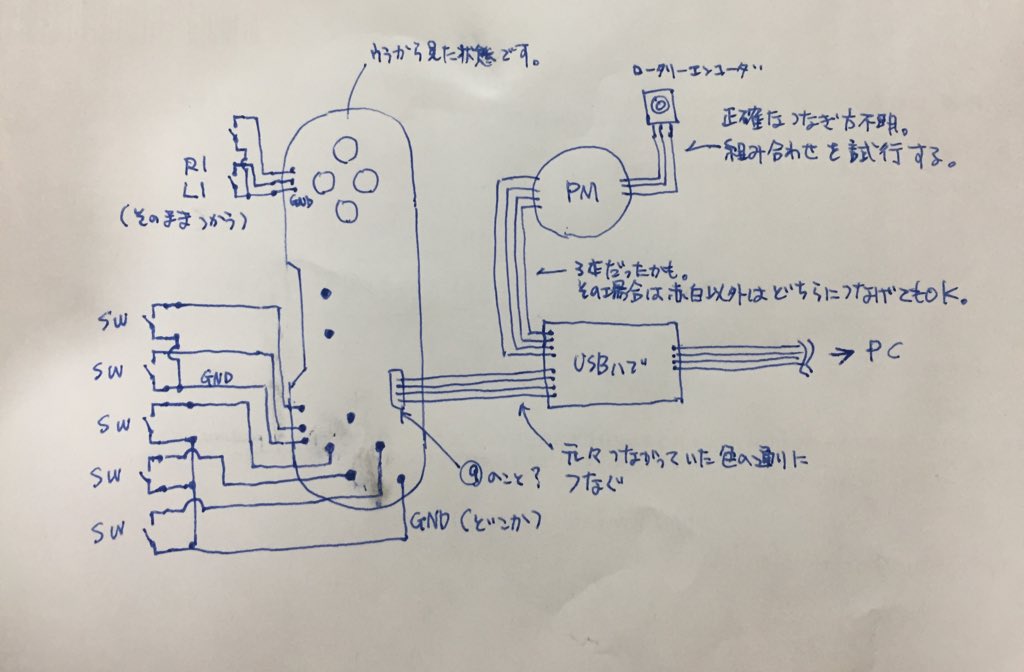 ウラから見た状態です。
ロータリーエンコーダー
正確なつなぎ方不明。
組み合わせを試行する。
R1
L1
(そのままつかう)
GND
PM
3本だったかも。
その場合は赤白以外はどちらにつなげてもOK。
SW
SW
GND
SW
SW
SW
USBハブ
PC
元々つながっていた色の通りに
つなぐ
⑨のこと?
GND (どこか)